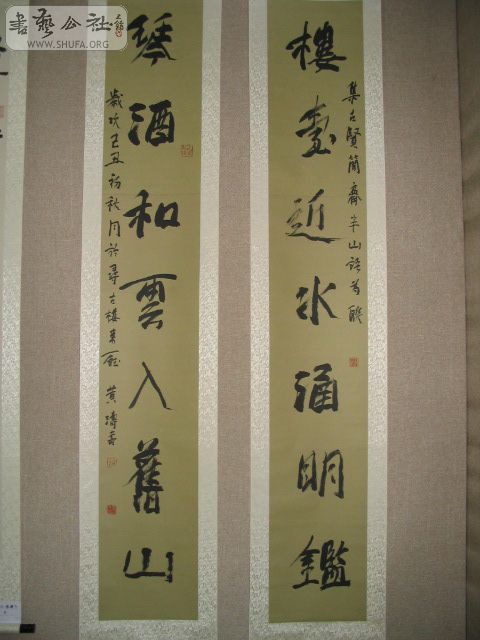 書藝公社
WWW.SHUFA.ORG
樓臺近水涵明鑑
集古賢簡齋半山語為聯
琴酒和雲入舊山
歲次己丑初秋月於尋古樓東 黃濤書